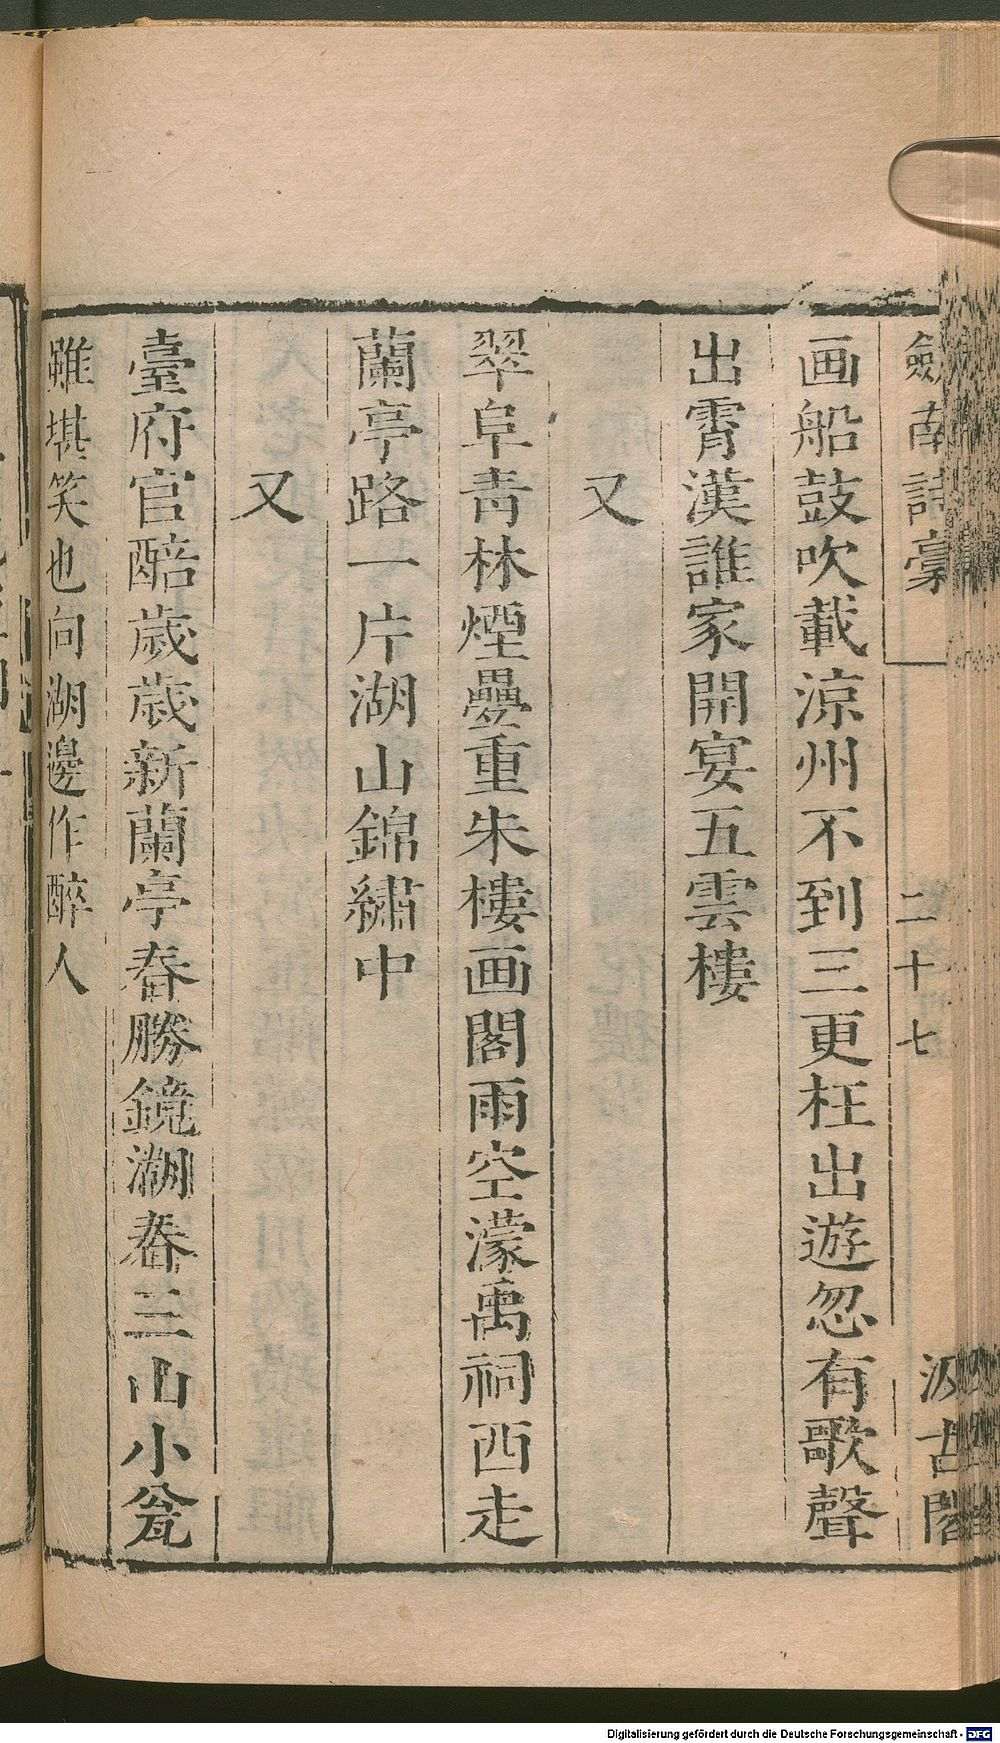 劒南詩稾
二十七
汲古閣
画船鼓吹載涼州不到三更枉出遊忽有歌聲
出霄漢誰家開宴五雲樓
又
翠阜青林煙疊重朱樓画閣雨空濛禹祠西走
蘭亭路一片湖山錦繡中
又
臺府官醅歲歲新蘭亭春勝鏡湖春三山小瓮
雖堪笑也向湖邊作醉人
Digitalisierung gefördert durch die Deutsche Forschungsgemeinschaft - DFG